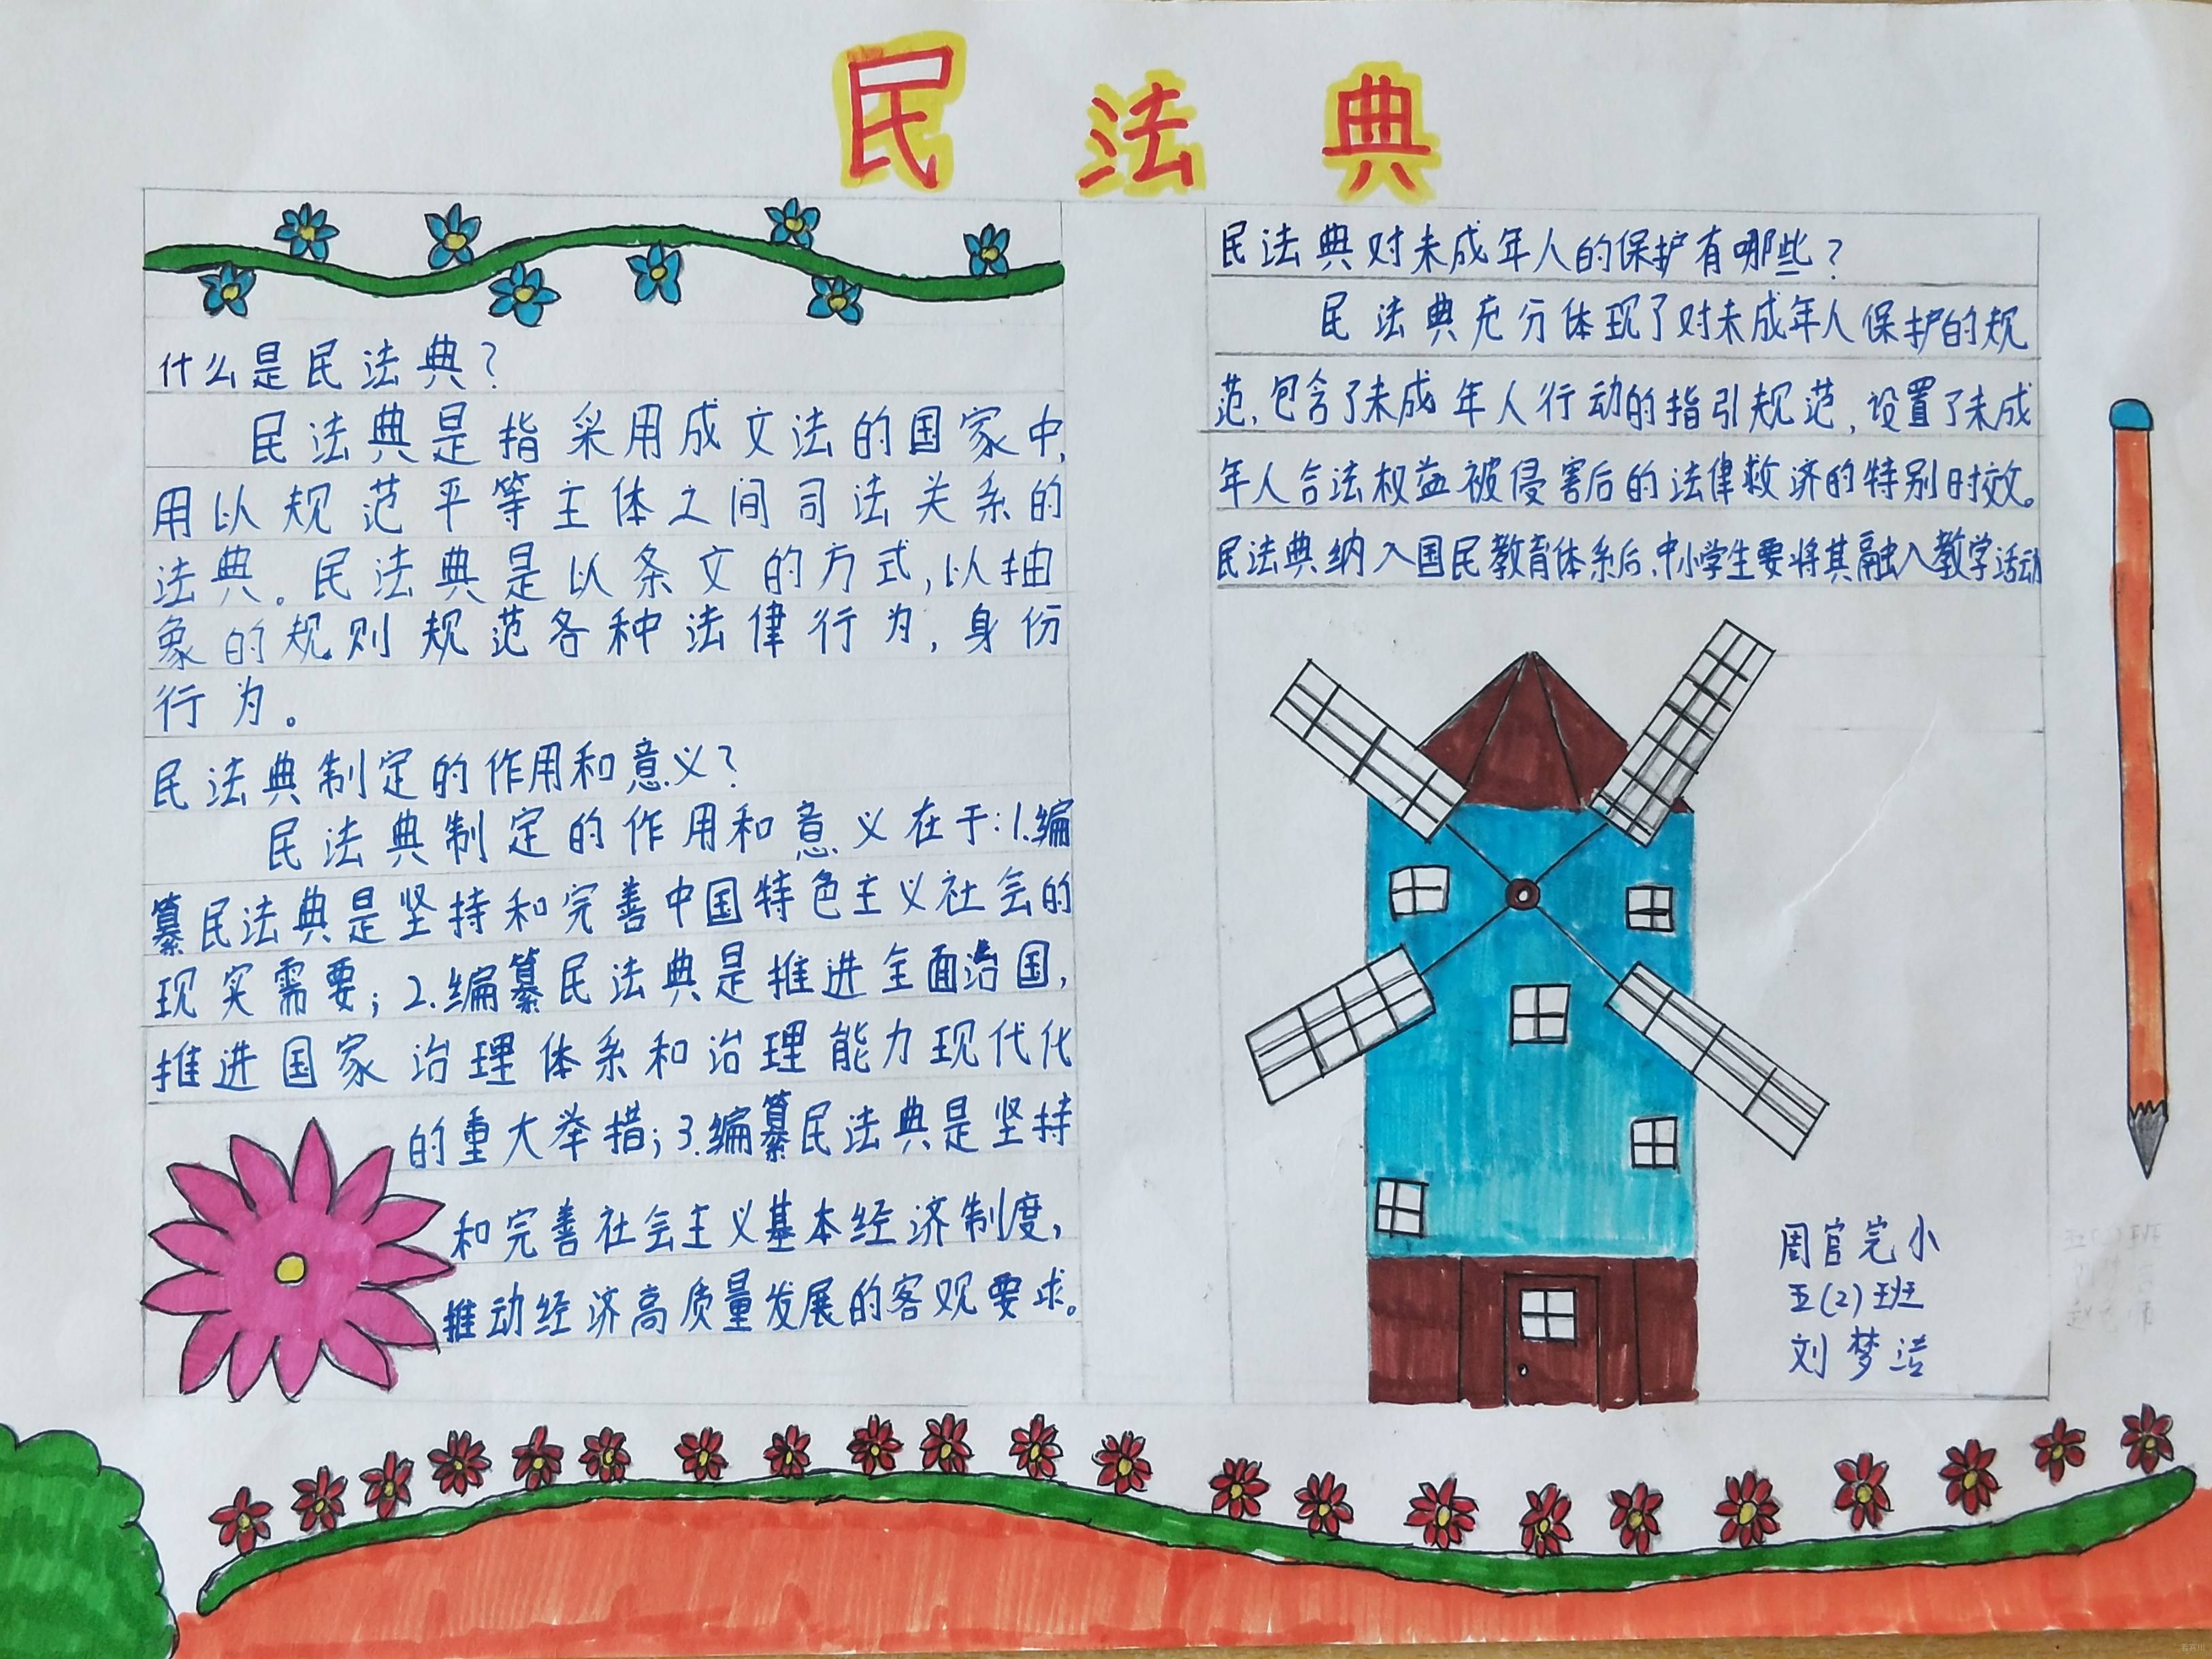 民法典
什么是民法典?
民法典是指采用成文法的国家中,
用以规范平等主体之间司法关系的
法典。民法典是以条文的方式,以抽
象的规则规范各种法律行为,身份
行为。
民法典制定的作用和意义?
民法典制定的作用和意义在于:1.编
纂民法典是坚持和完善中国特色主义社会的
现实需要;2.编纂民法典是推进全面治国,
推进国家治理体系和治理能力现代化
的重大举措;3.编纂民法典是坚持
和完善社会主义基本经济制度,
推动经济高质量发展的客观要求。
民法典对未成年人的保护有哪些?
民法典充分体现了对未成年人保护的规
范,包含了未成年人行动的指引规范,设置了未成
年人合法权益被侵害后的法律救济的特别时效。
民法典纳入国民教育体系后,中小学生要将其融入教学活动
周官完小
五(2)班
刘梦洁